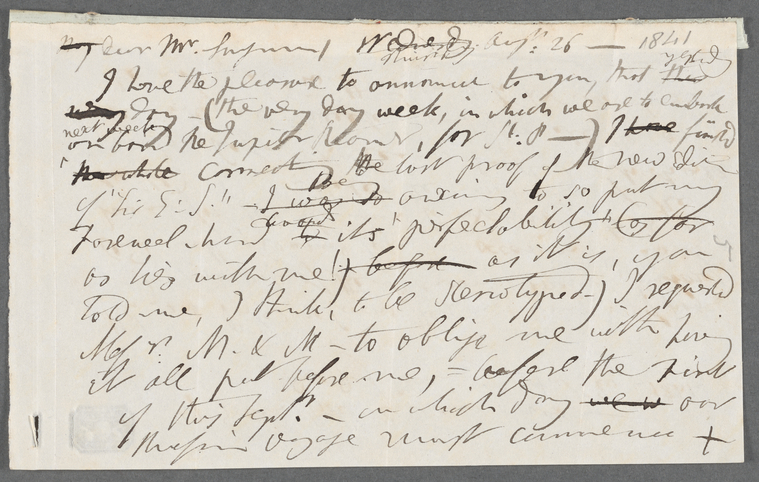 My dear Mr. Wednesday Augst. 26 — 1841
Thursday
I have the pleasure to announce to you, that this yesterday
very day — (the very day week, in which we are to embark
next week
on board the Jupiter Steamer, for St. P —) I have finished
the whole correcting the last proof of the new edition
of "Sir E: S:" — I was so anxious to so put my
being
farewell hand to its "perfectability" (as far
as lies with me!) + before as it is, you
told me, I think, to be stereotyped —) I requested
Messrs. M. & M — to oblige me with having
it all put before me, — before the first
of this Septr. — in which day we w our
Russian voyage must commence +